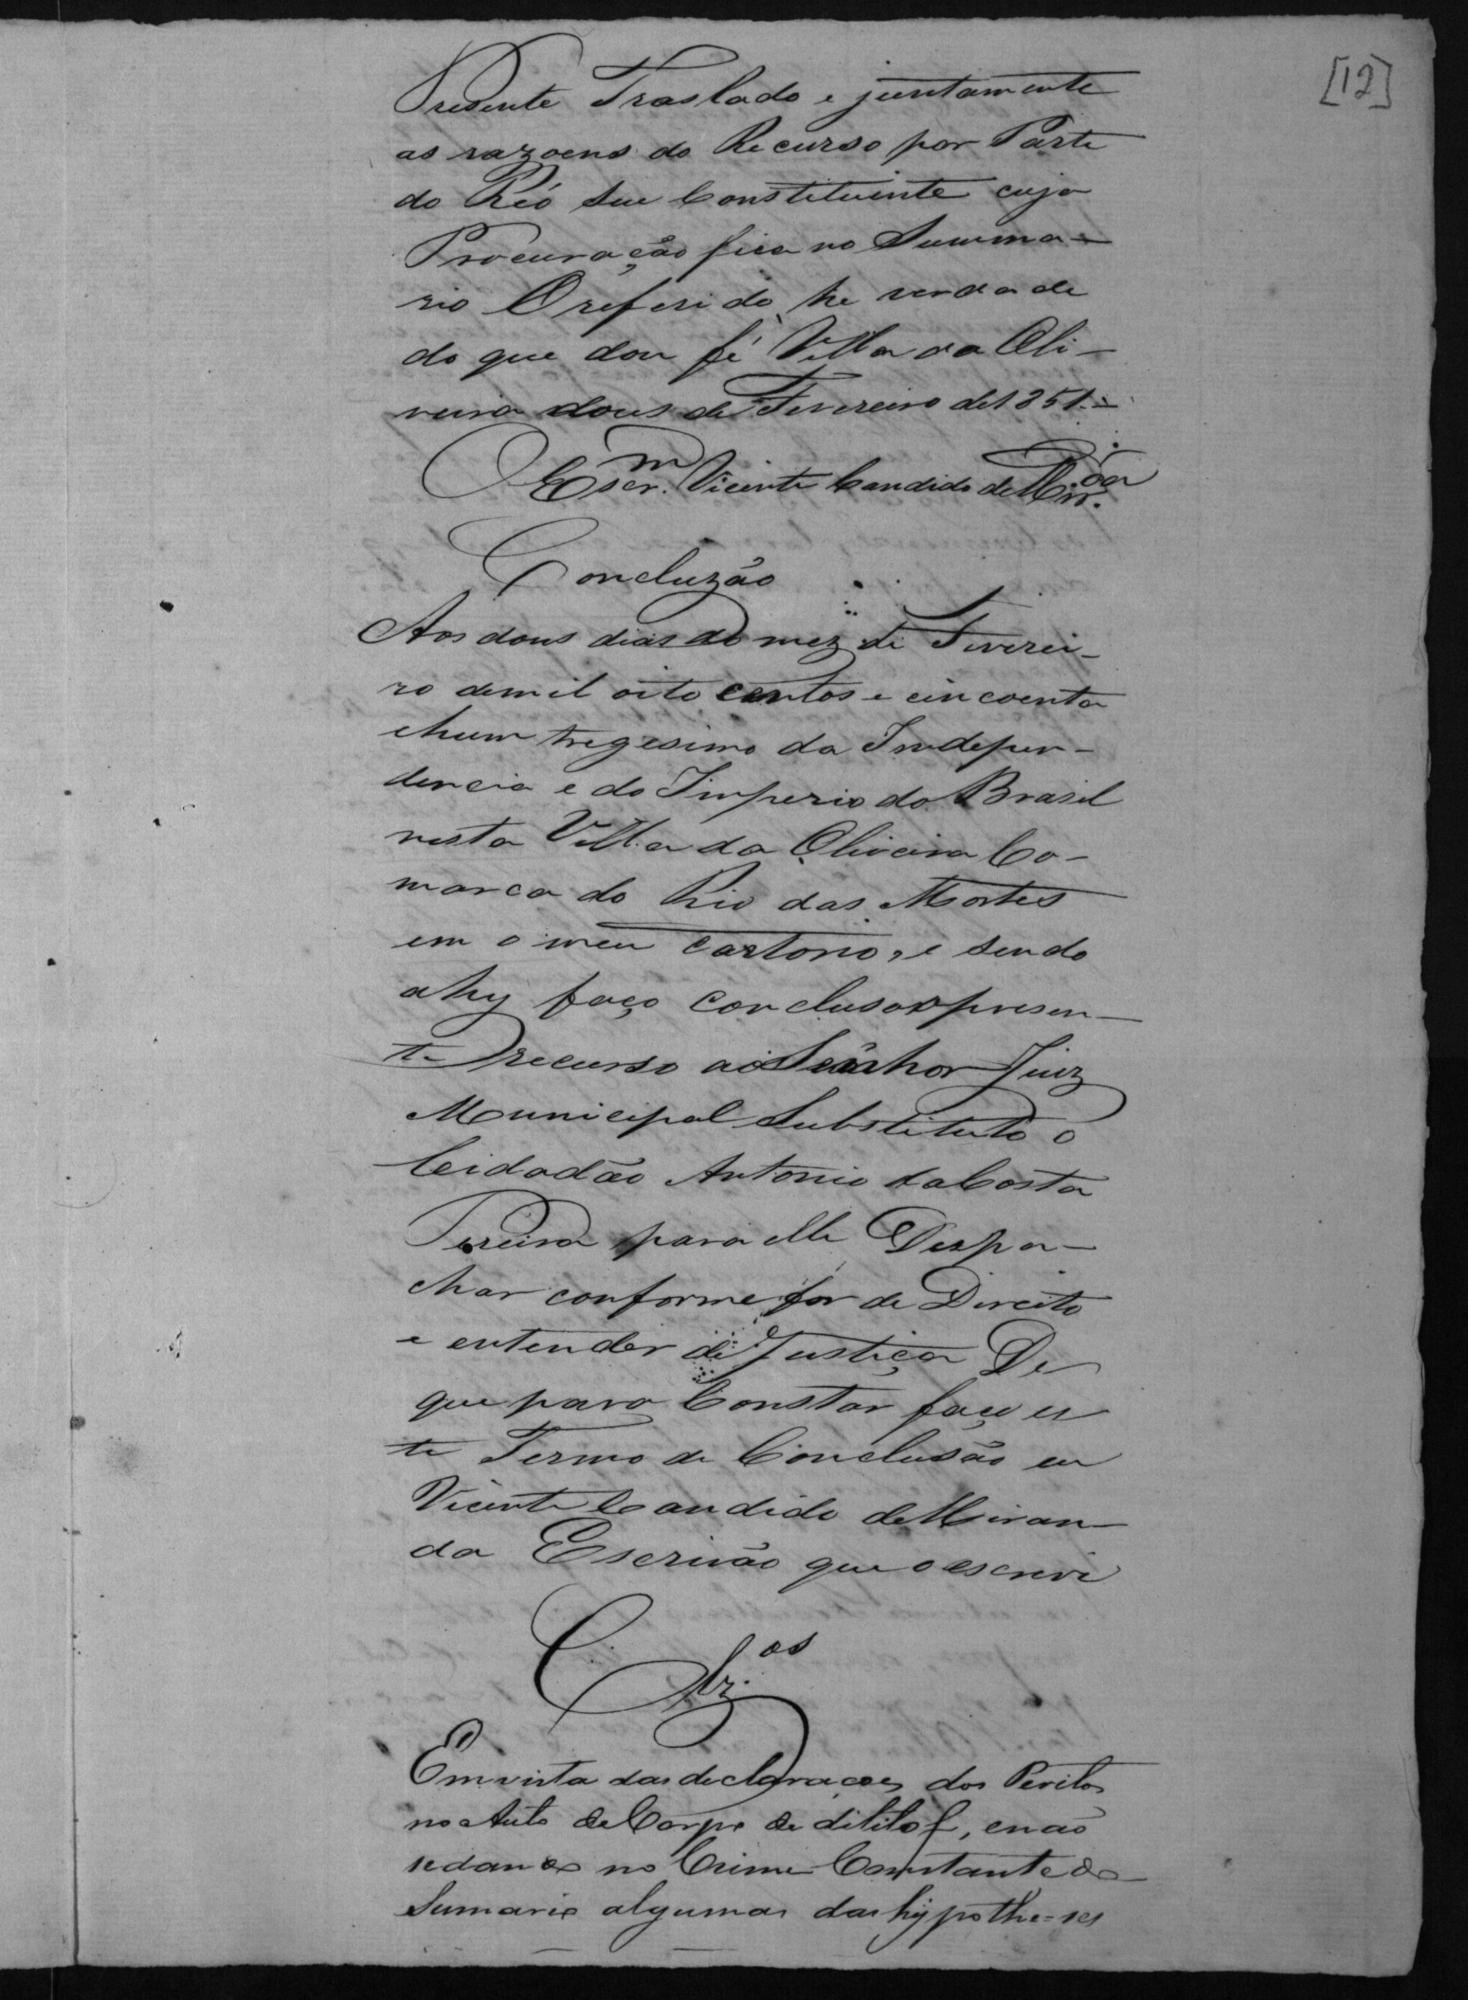 [12]
Presente Traslado e juntamente
as razoens do Recurso por Parte
do Réo seu Constituinte cuja
Procuração fica no Summa-
rio O referido he verdade
do que dou fé Villa da Oli-
veira dous de Fevereiro de 1851.
O Escr.m Vicente Candido de Mir.da
Concluzão
Aos dous dias do mez de Feverei-
ro de mil oito centos e cincoenta
e hum trigesimo da Indepen-
dencia e do Imperio do Brasil
nesta Villa da Oliveira Co-
marca do Rio das Mortes
em o meu Cartorio, e sendo
ahy faço concluso o presen-
te recurso ao Senhor Juiz
Municipal Substituto o
Cidadão Antonio da Costa
Pereira para elle Despa-
char conforme for de Direito
e entender de Justiça De
que para Constar faço es
te Termo de Conclusão eu
Vicente Candido de Miran-
da Escrivão que o escrevi
Clz.os
Em vista das declaraçoes dos Peritos
no Auto de Corpo de dilito f, e não
se dando no Crime Constante do
Sumario algumas das hypothe=ses